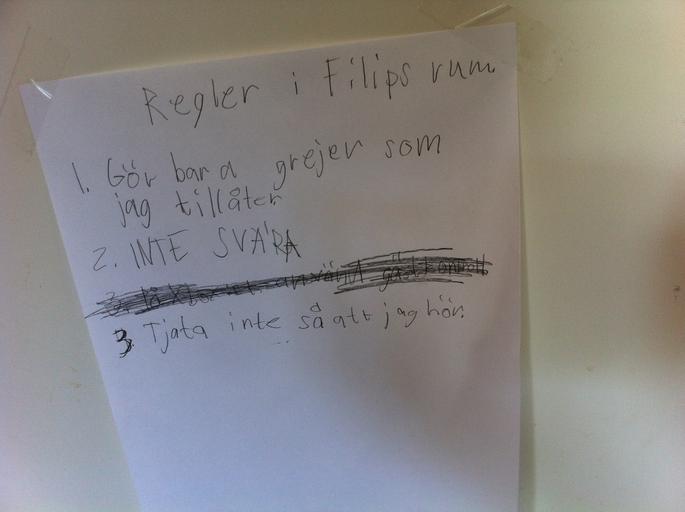 Regler i Filips rum
1. Gör bara grejer som
jag tillåter
2. INTE SVÄRA
3. Tjata inte så att jag hör.